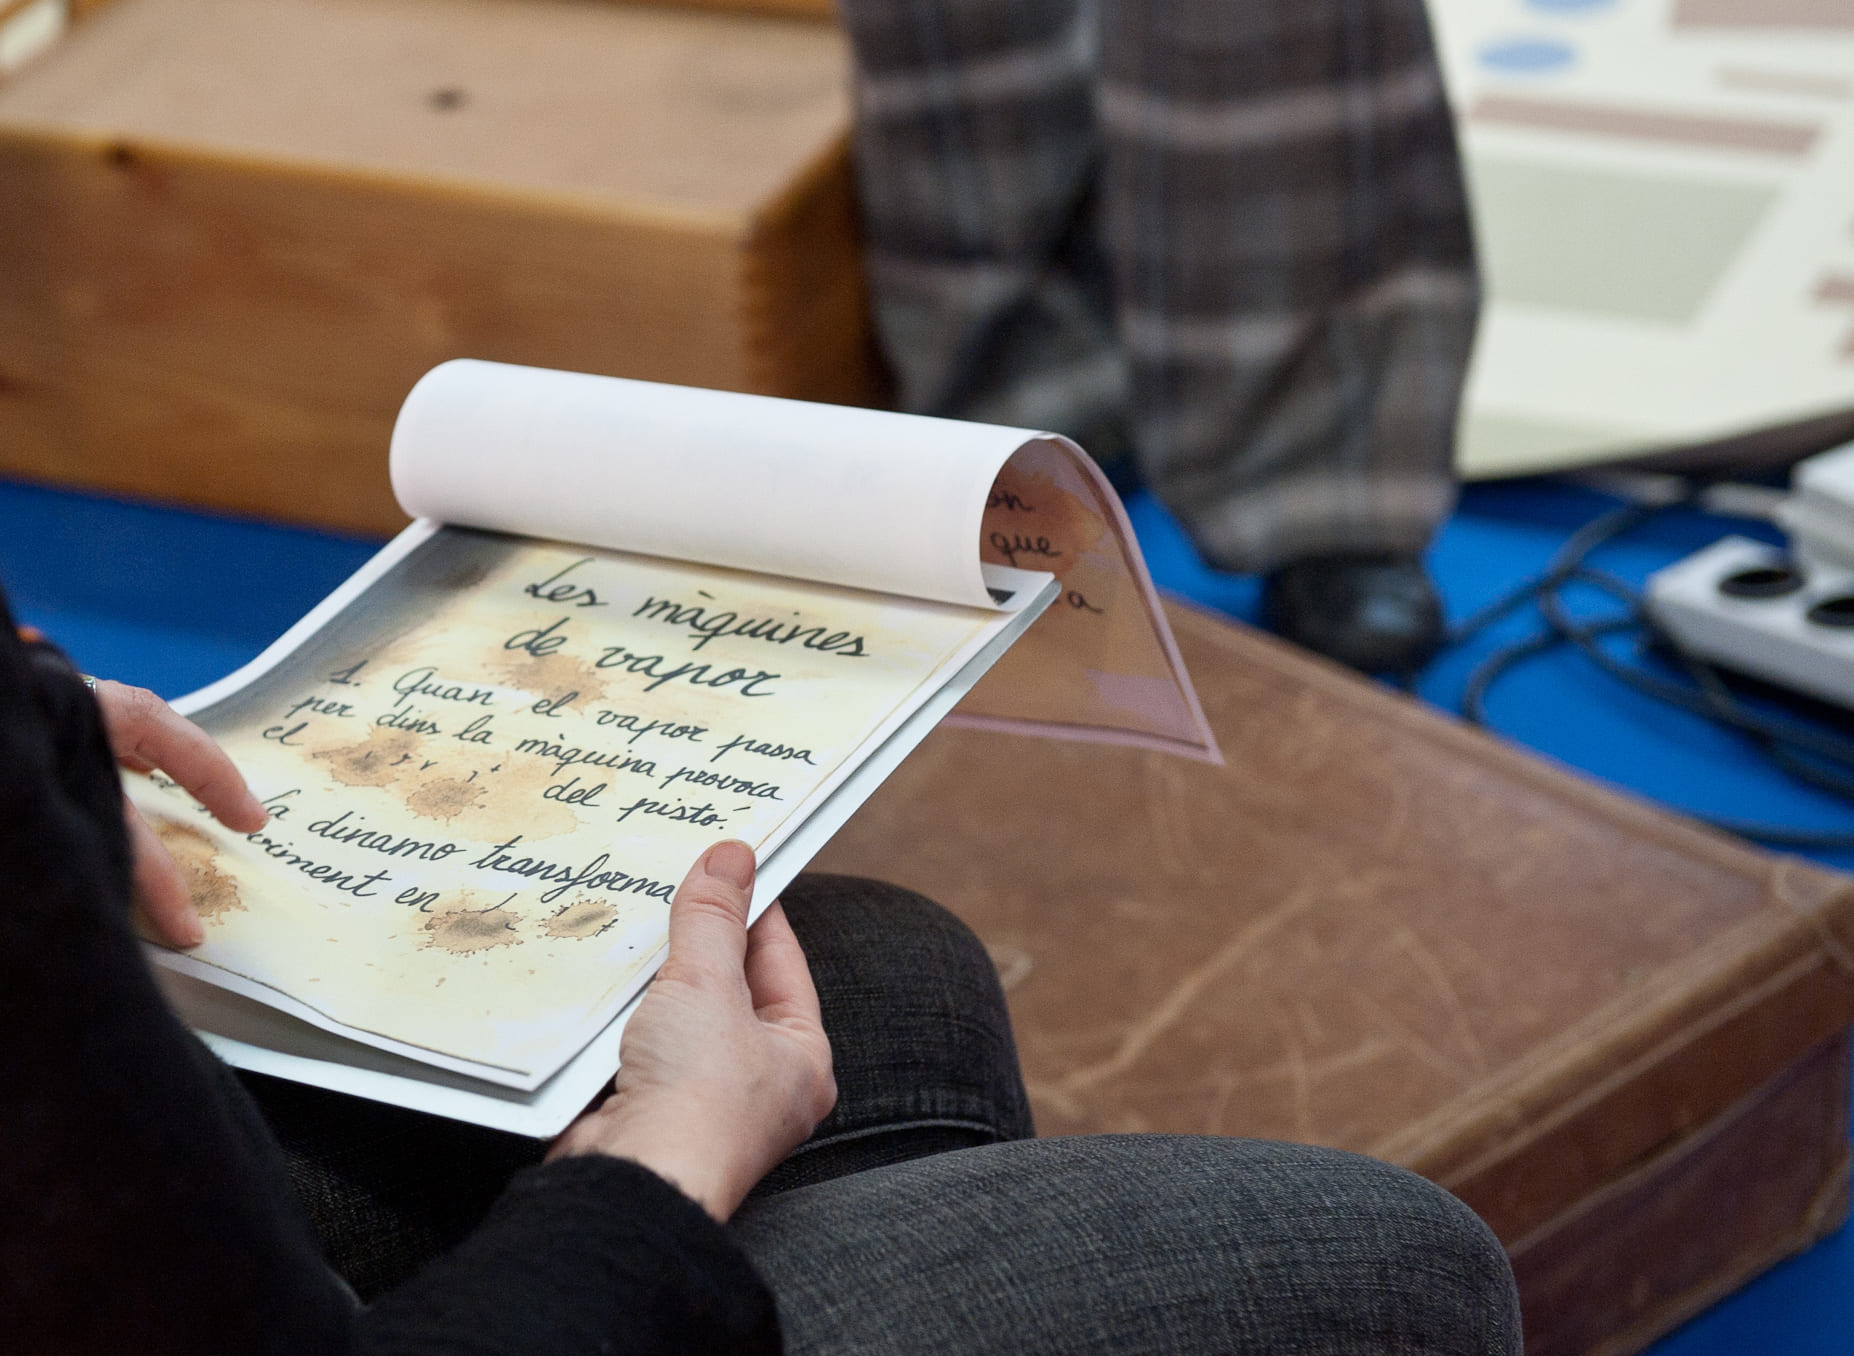 Les màquines
de vapor
1. Quan el vapor passa
per dins la màquina provoca
el del pistó.
la dinamo transforma
en
que